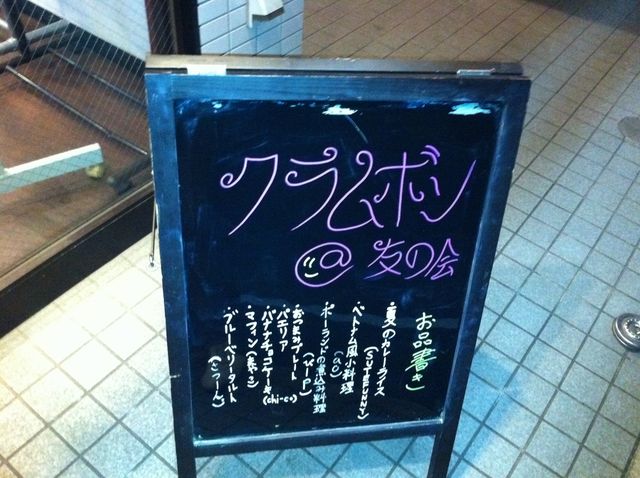 クラムボン
@友の会
お品書き
・夏のカレーライス
(SUTEFUNNY)
・ベトナム風小料理
(ao)
・ポーランドの煮込み料理
(k-p)
・おつまみプレート
・パエリア
・バナナチョコケーキ(chi-co)
・マフィン
・ブルーベリータルト